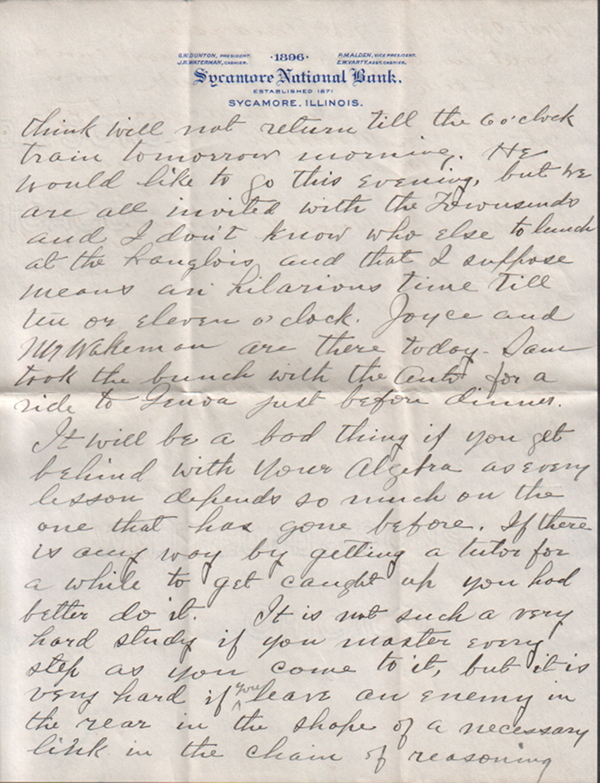 G.W. DUNTON, PRESIDENT. · 1896 · P.M. ALDEN, VICE PRESIDENT.
J.H. WATERMAN, CASHIER. E.W. HARTY, ASST. CASHIER.
Sycamore National Bank.
ESTABLISHED 1871
SYCAMORE, ILLINOIS.
think will not return till the 6 o'clock
train tomorrow morning. He
would like to go this evening, but we
are all invited with the Townsends
and I don't know who else to lunch
at the Langlois and that I suppose
means an hilarious time till
ten or eleven o'clock. Joyce and
Mr Wakeman are there today. Sam
took the bunch with the Auto for a
ride to Genoa just before dinner.
It will be a bad thing if you get
behind with your Algebra as every
lesson depends so much on the
one that has gone before. If there
is any way by getting a tutor for
a while to get caught up you had
better do it. It is not such a very
hard study if you master every
step as you come to it, but it is
very hard if you leave an enemy in
the rear in the shape of a necessary
link in the chain of reasoning